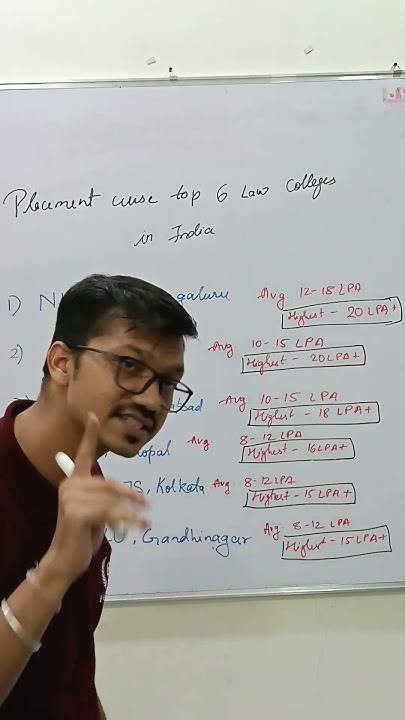 Placement wise top 6 Law colleges
in India
1) N galuru Avg. 12-18 LPA
Highest - 20 LPA+
2) Avg 10-15 LPA
Highest - 20LPA+
bad Avg 10-15 LPA
Highest - 18 LPA+
opal Avg 8-12 LPA
Highest - 16LPA+
JS, Kolkata Avg 8-12 LPA
Highest - 15 LPA+
LU, Gandhinagar Avg. 8-12 LPA
Highest - 15 LPA+